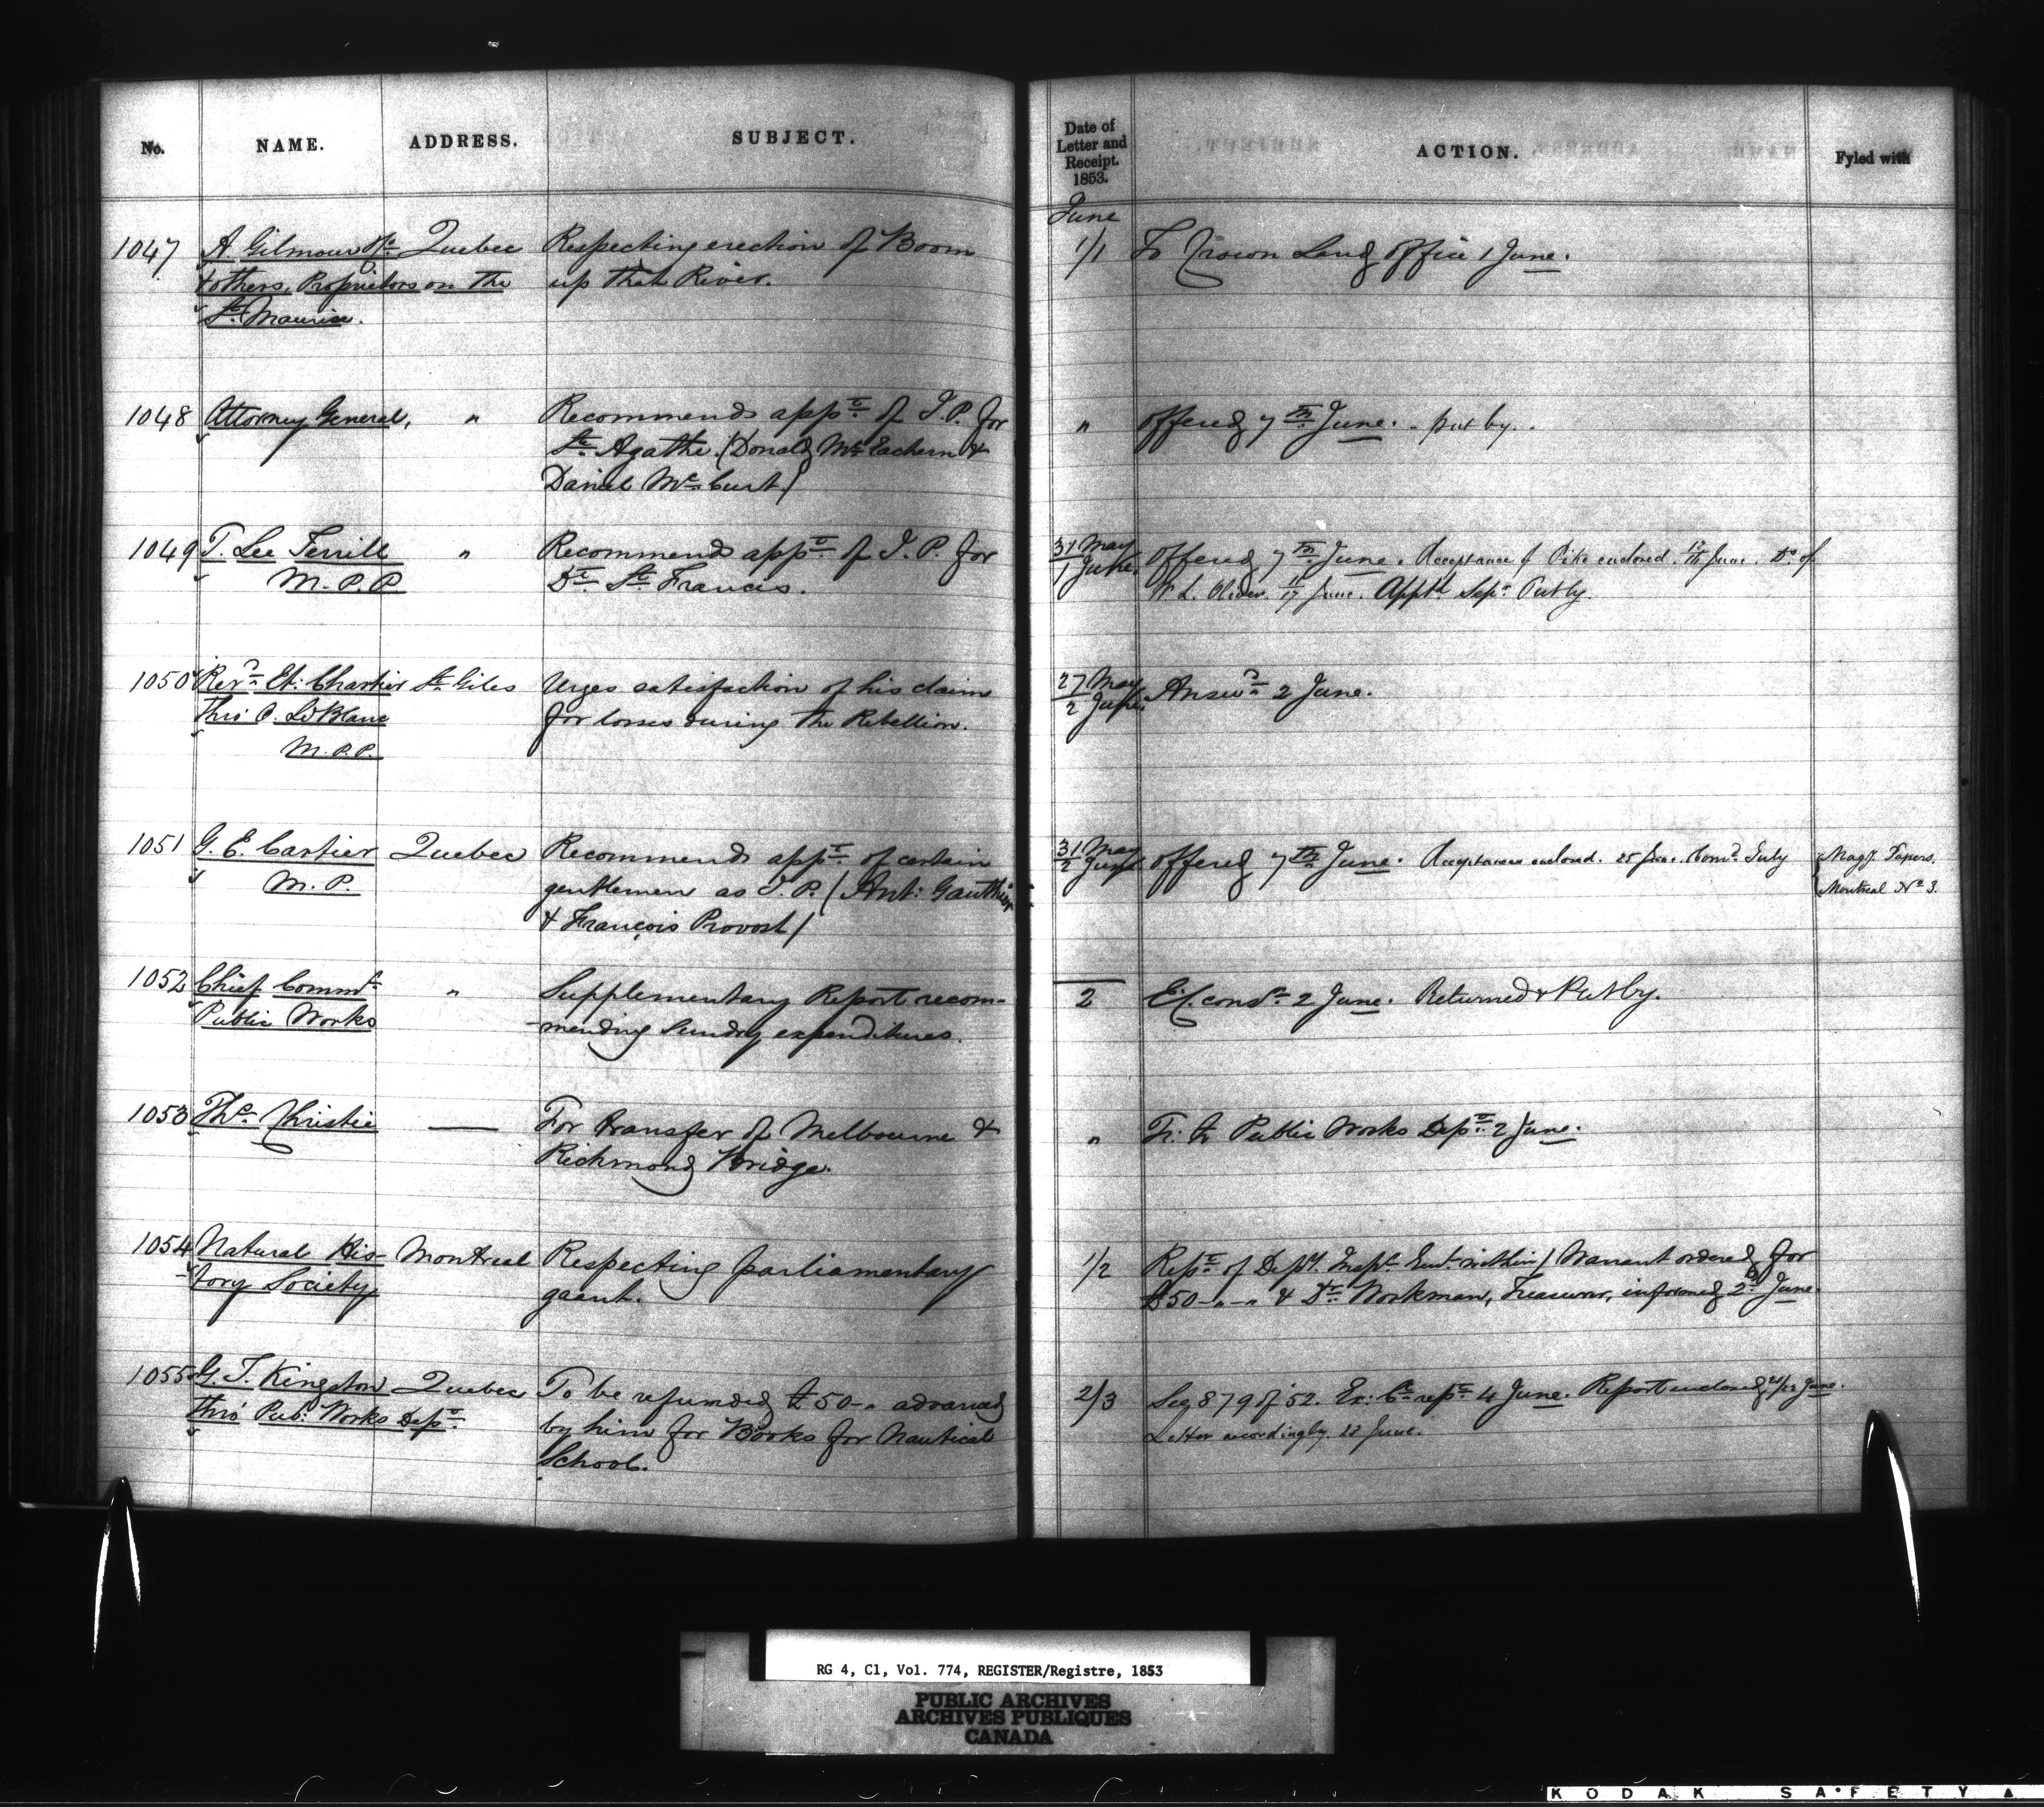 No. NAME. ADDRESS. SUBJECT.
1047 A Gilmour Quebec Respecting erection of Boom
& others, Proprietors on the up that River.
St. Maurice.
1048 Attorney General, " Recommends appt. of J.P. for
Ste Agathe. (Donald McEachern &
Daniel McCurt)
1049 T. Lee Terrill " Recommends appt. of J.P. for
M.P.P. Dt. St. Francis.
1050 Revd. Et: Chartier St. Giles Urges satisfaction of his claim
thro' O. LeBlanc for losses during the Rebellion.
M.P.P.
1051 G. E. Cartier Quebec Recommends appt. of certain
M.P. gentlemen as J.P. (Ant: Gauthier
& François Provost)
1052 Chief Commr. " Supplementary Report recom-
Public Works mending sundry expenditures.
1053 Ths. Christie — For transfer of Melbourne &
Richmond Bridge.
1054 Natural His- Montreal Respecting parliamentary
tory Society grant.
1055 G. T. Kingston Quebec To be refunded £50-" advanced
thro' Pub: Works Dept. by him for Books for Nautical
School.
Date of
Letter and
Receipt.
1853. ACTION. Fyled with
June
1/1 To Crown Land office 1 June.
" offered 7th June. - put by.
31 May
1 June. offered 7th June. Acceptance of Pike enclosed. June. Do. of
W. L. Oliver. 17 June. Apptd. Sepr. Put by.
27 May
2 June. Answd. 2 June.
31 May
2 June offered 7th June. Acceptances enclosed. 25 June. Comn. July Magy. Papers.
Montreal No. 3.
2 Ex. conl. 2 June. Returned & Put by.
" Tr. to Public Works Dept. 2 June.
1/2 Rept. of Depy. Inspr. Genl. within / Warrant ordered for
£50-"-" & Dr. Workman, Treasurer, informed 2d June.
2/3 See 879 of '52. Ex: Cl. rept. 4 June. Report enclosed 21/22 June.
Letter accordingly. 22 June.
RG 4, C1, Vol. 774, REGISTER/Registre, 1853
PUBLIC ARCHIVES
ARCHIVES PUBLIQUES
CANADA
KODAK SAFETY